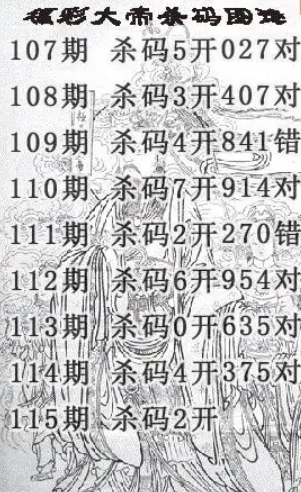 彩大帝杀码图
107期 杀码5开027对
108期 杀码3开407对
109期 杀码4开841错
110期 杀码7开914对
111期 杀码2开270错
112期 杀码6开954对
113期 杀码0开635对
114期 杀码4开375对
115期 杀码2开